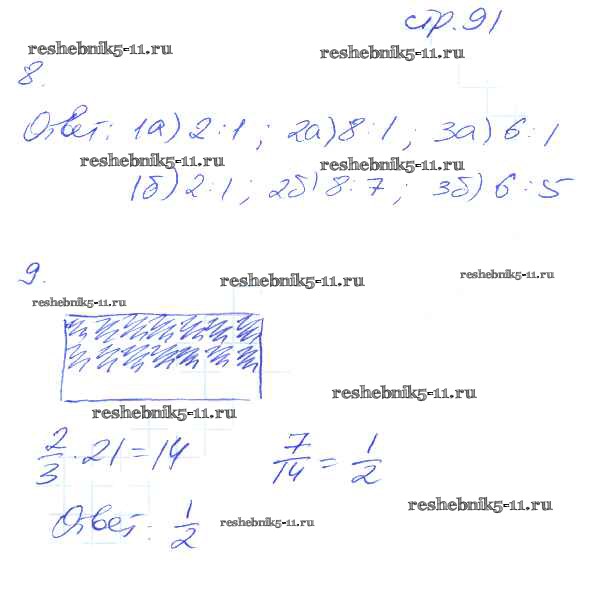 стр.91
reshebnik5-11.ru reshebnik5-11.ru
8.
Ответ: 1а) 2:1; 2а) 8:1; 3а) 6:1
reshebnik5-11.ru reshebnik5-11.ru
1б) 2:1; 2б) 8:7; 3б) 6:5
9.
reshebnik5-11.ru reshebnik5-11.ru
reshebnik5-11.ru
reshebnik5-11.ru
reshebnik5-11.ru
2/3 · 21 = 14 7/14 = 1/2
reshebnik5-11.ru
Ответ: 1/2 reshebnik5-11.ru